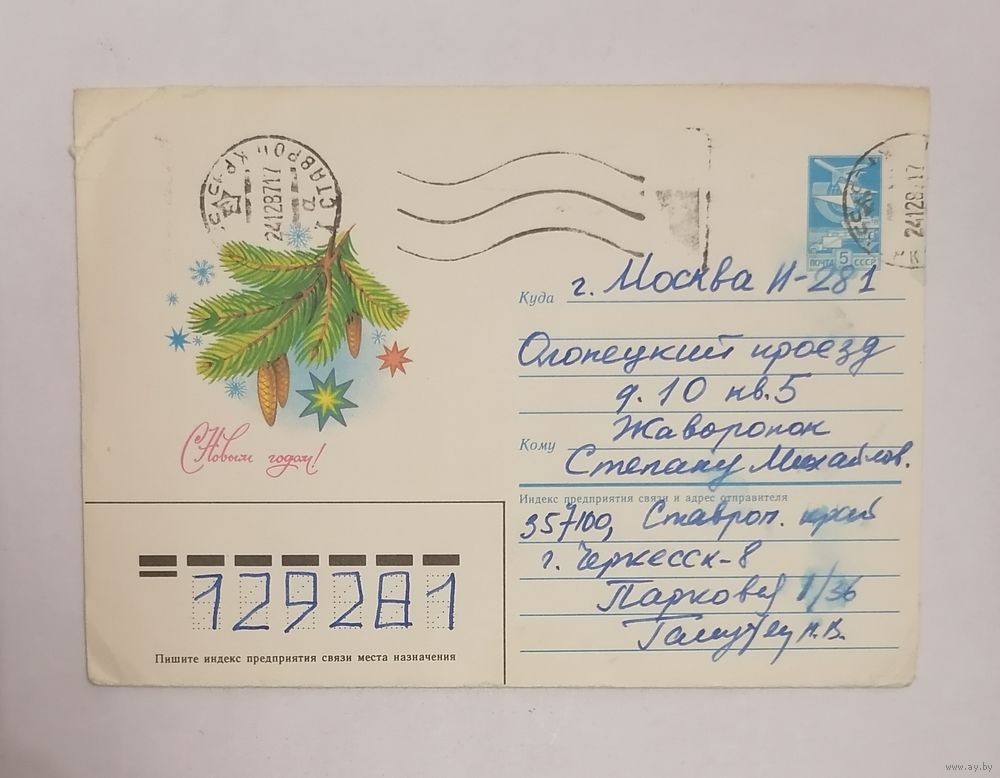 СТАВРОП КР
24128717
24128717
ПОЧТА 5 СССР
Куда г. Москва И-281
Олонецкий проезд
д. 10 кв. 5
Жаворонок
Кому Степану Михайлов.
Индекс предприятия связи и адрес отправителя
357100, Ставроп. край
г. Черкесск-8
Парковая 1/36
Н.В.
С Новым годом!
129281
Пишите индекс предприятия связи места назначения
www.ay.by